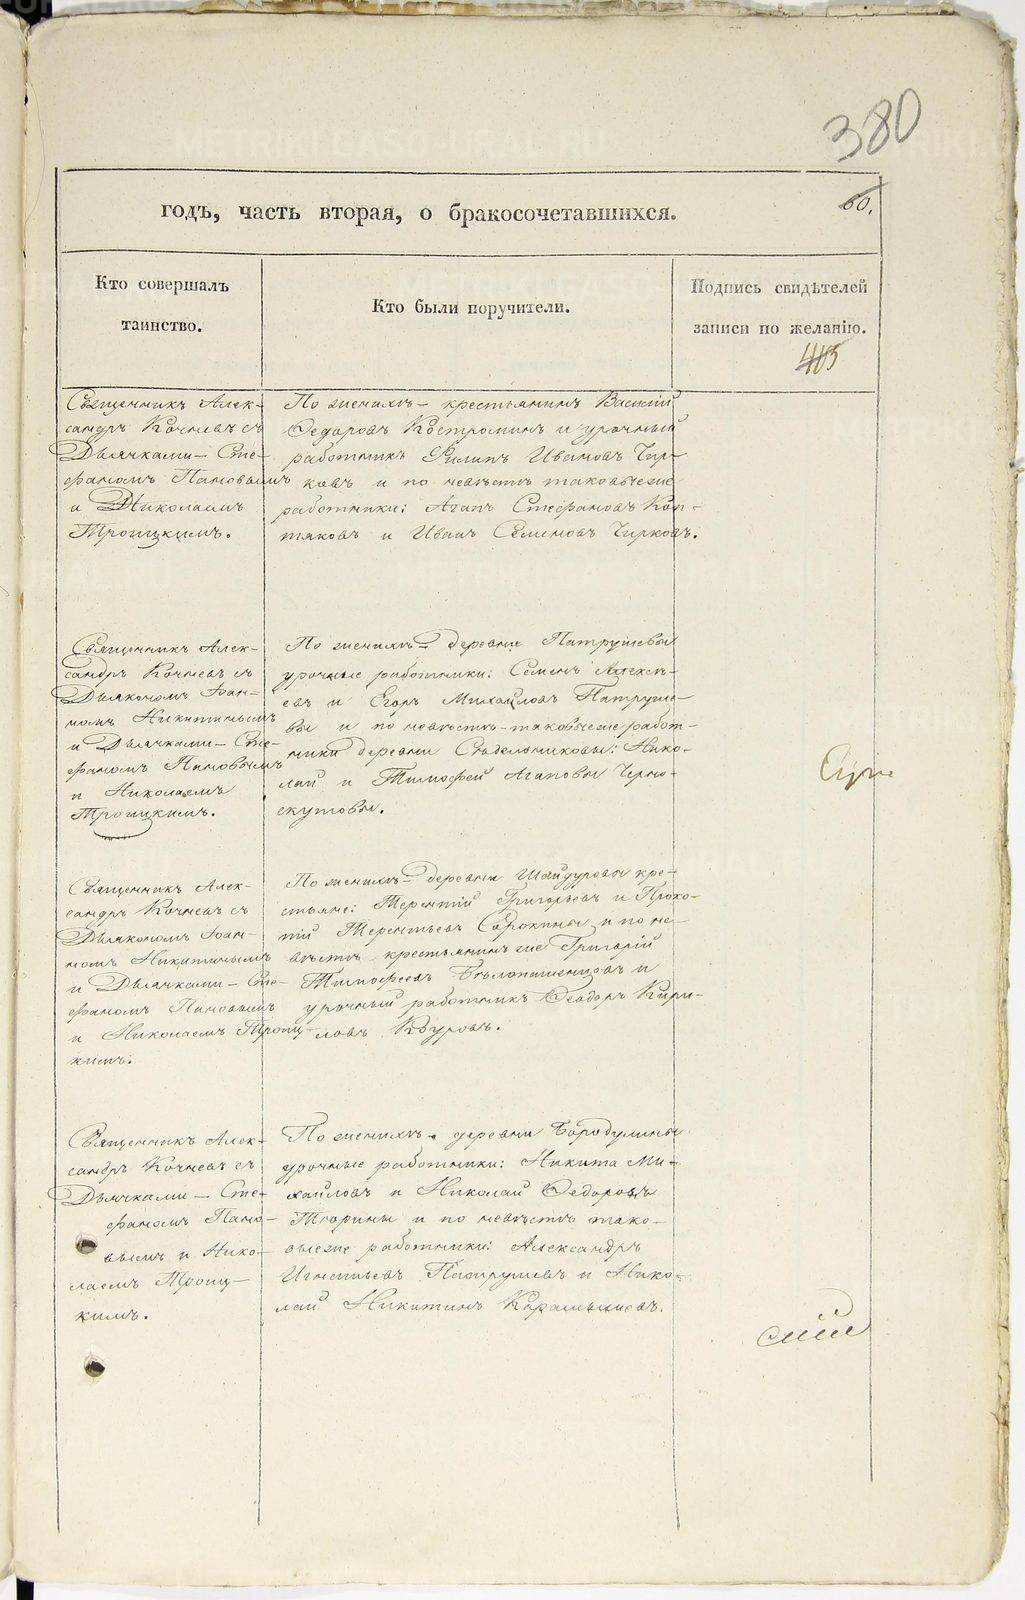 380
60.
годъ, часть вторая, о бракосочетавшихся.
Кто совершалъ
таинство.
Кто были поручители.
Подпись свидѣтелей
записи по желанію.
403
Священникъ Алек-
сандръ Кочневъ съ
Дьячками – Сте-
фаномъ Пановымъ
и Николаемъ
Троицкимъ.
По женихѣ – крестьянинъ Василій
Ѳедоровъ Костроминъ и урочный
работникъ Филипъ Ивановъ Чир-
ковъ и по невѣстѣ таковыеже
работники: Агапъ Стефановъ Коп-
тяковъ и Иванъ Семеновъ Чирковъ.
Священникъ Алек-
сандръ Кочневъ съ
Дьякономъ Іоан-
номъ Никитинымъ
и Дьячками – Сте-
фаномъ Пановымъ
и Николаемъ
Троицкимъ.
По женихѣ – деревни Патрушевы
урочные работники: Семенъ Алексѣ-
евъ и Егоръ Михайловъ Патруше-
вы и по невѣстѣ – таковыеже работ-
ники деревни Сѣдельниковы: Нико-
лай и Тимофей Агаповы Черно-
скутовы.
Священникъ Алек-
сандръ Кочневъ съ
Дьякономъ Іоан-
номъ Никитинымъ
и Дьячками – Сте-
фаномъ Пановымъ
и Николаемъ Троиц-
кимъ.
По женихѣ – деревни Шайдуровы кре-
стьяне: Терентій Григорьевъ и Проко-
пій Терентьевъ Сорокины и по не-
вѣстѣ крестьянинъ же Григорій
Тимофеевъ Бѣлопашенцовъ и
урочный работникъ Ѳеодоръ Кири-
ловъ
Священникъ Алек-
сандръ Кочневъ съ
Дьячками – Сте-
фаномъ Пано-
вымъ и Нико-
лаемъ Троиц-
кимъ.
По женихѣ – деревни Бородулины
урочные работники: Никита Ми-
хайловъ и Николай Ѳедоровъ
Тюрины и по невѣстѣ тако-
выеже работники: Александръ
Игнатьевъ Патрушевъ и Нико-
лай Никитинъ Карамышевъ.
METRIKI.GASO-URAL.RU